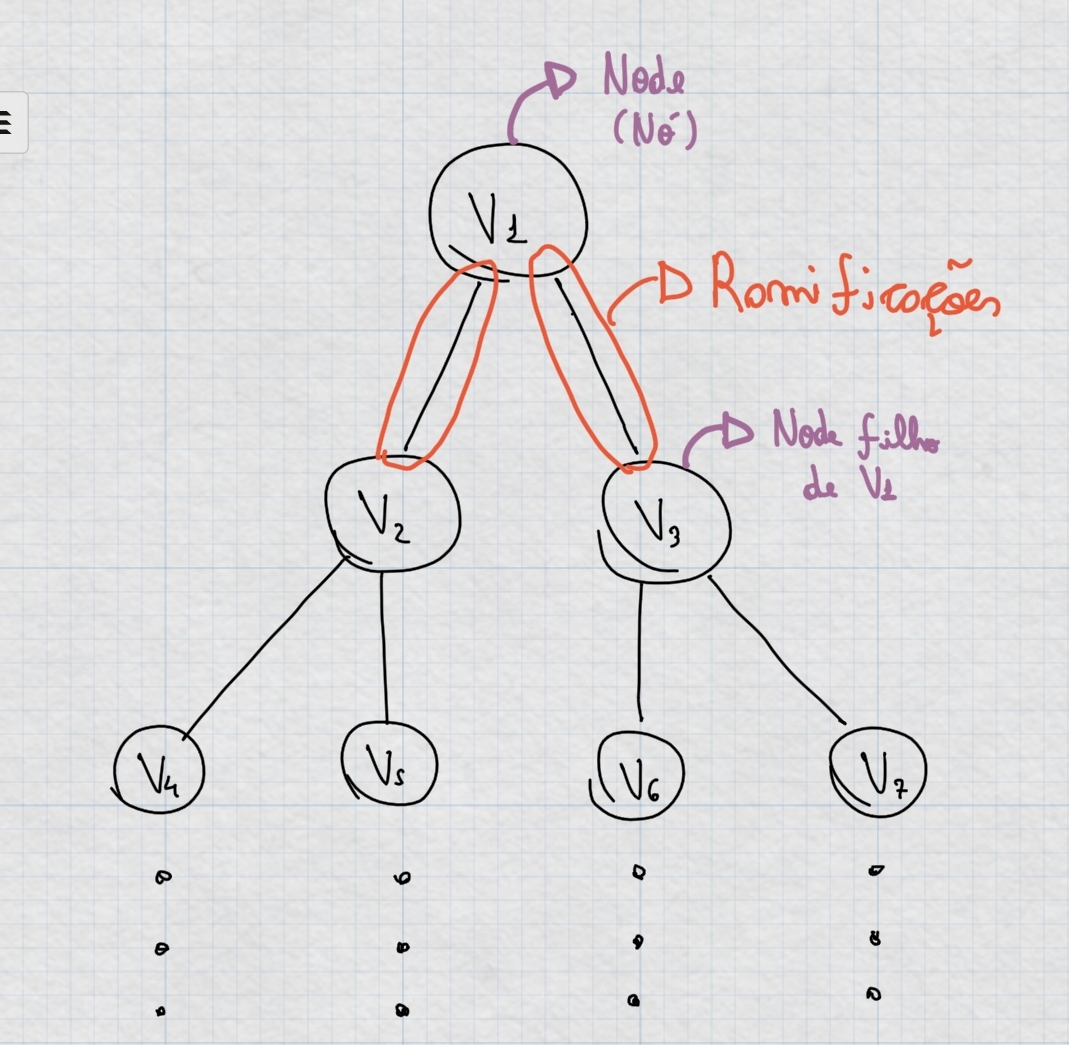 Node
(Nó)
V1
Ramificações
Node filho
de V1
V2
V3
V4
V5
V6
V7